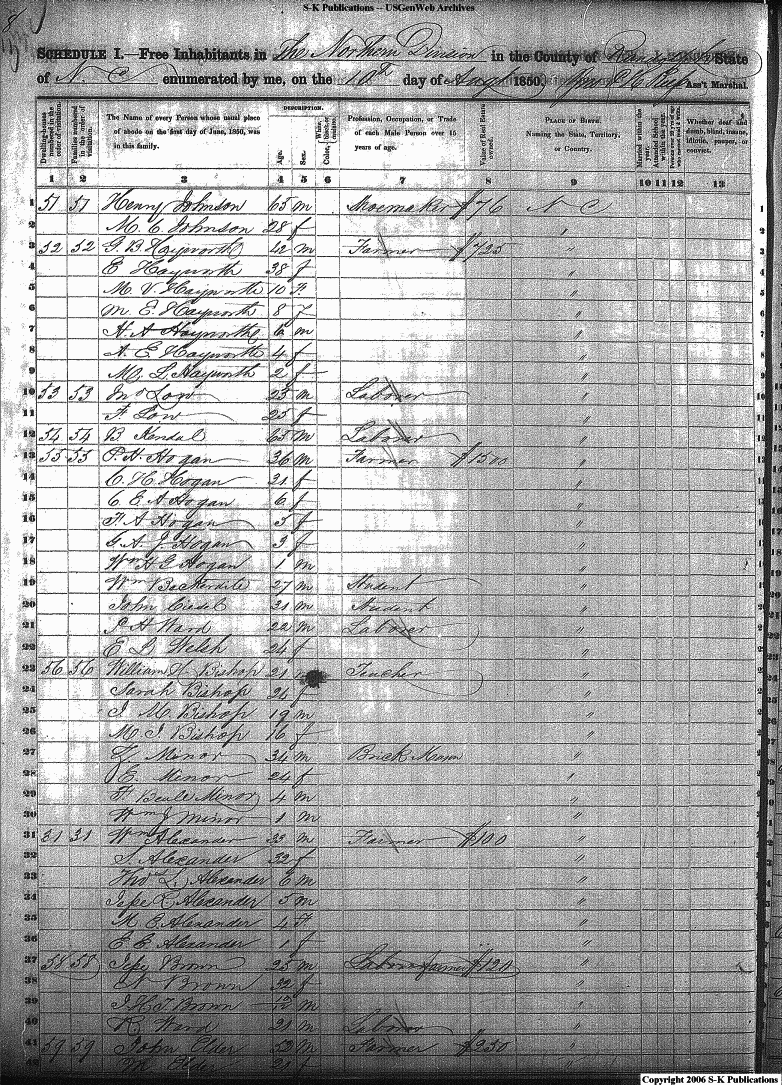 S-K Publications -- USGenWeb Archives
8
SCHEDULE I.—Free Inhabitants in The Northern Division in the County of Randolph State
of N C enumerated by me, on the 10th day of Augt 1850. Ass't Marshal.
DESCRIPTION.
Dwelling-houses numbered in the order of visitation. Families numbered in the order of visitation. The Name of every Person whose usual place of abode on the first day of June, 1850, was in this family. Age. Sex. Color, White, black, or mulatto. Profession, Occupation, or Trade of each Male Person over 15 years of age. Value of Real Estate owned. PLACE OF BIRTH. Naming the State, Territory, or Country. Married within the year. Attended School within the year. Whether deaf and dumb, blind, insane, idiotic, pauper, or convict.
1 2 3 4 5 6 7 8 9 10 11 12 13
1 51 51 Henry Johnson 65 m Shoemaker $76 N C 1
2 M. C. Johnson 28 f " 2
3 52 52 G. B. Hayworth 42 m Farmer $725 " 3
4 E Hayworth 38 f " 4
5 M. V. Hayworth 10 f " 5
6 M. E. Hayworth 8 f " 6
7 H. A Hayworth 6 m " 7
8 A. E. Hayworth 4 f " 8
9 M. L. Hayworth 2 f " 9
10 53 53 Jno Low 25 m Laborer " 10
11 F. Low 25 f " 11
12 54 54 B Kendal 65 m Laborer " 12
13 55 55 P. H. Hogan 36 m Farmer $1500 " 13
14 C. H. Hogan 31 f "
15 C E A Hogan 6 f "
16 F. A Hogan 5 f "
17 G. A. J. Hogan 3 f "
18 Wm H G Hogan 1 m "
19 Wm Beckerdite 27 m Student "
20 John 21 m Student "
21 J. H Ward 22 m Laborer "
22 E. J. Welch 24 f "
23 56 56 William H. Bishop 21 Teacher "
24 Sarah Bishop 24 f "
25 J. M. Bishop 19 m "
26 M. J Bishop 16 f "
27 Z. Minor 34 m Brick Mason "
28 E. Minor 24 f "
29 F. Beale Minor 4 m "
30 Wm J Minor 1 m "
31 31 31 Wm Alexander 33 m Farmer $100 "
32 S. Alexander 32 f "
33 Thos L. Alexander 6 m "
34 Jesse R Alexander 5 m "
35 M E Alexander 4 f "
36 E E Alexander 1 f "
37 58 58 Jesse Brown 25 m Laborer farmer $120 "
38 Brown 32 f "
39 J. H. T Brown m "
40 R. Ward 21 m Laborer "
41 59 59 John Elder 52 m Farmer $250 "
42 M. Elder 21 f "
Copyright 2006 S-K Publications